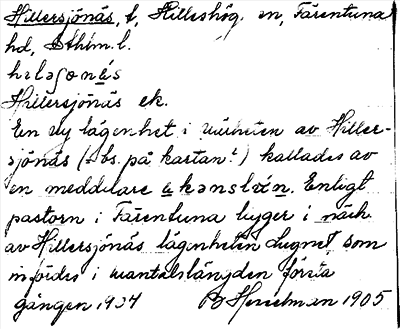 Hillersjönäs, t, Hilleshög sn, Färentuna
hd, Sthlm. l.
Hillersjönäs ek.
En ny lägenhet i närheten av Hiller-
sjönäs (Obs. på kartan!) kallades av
en meddelare ekənsloën. Enligt
pastorn i Färentuna ligger i närh.
av Hillersjönäs lägenheten Lugnet, som
infördes i mantalslängden första
gången 1904 B Hesselman 1905